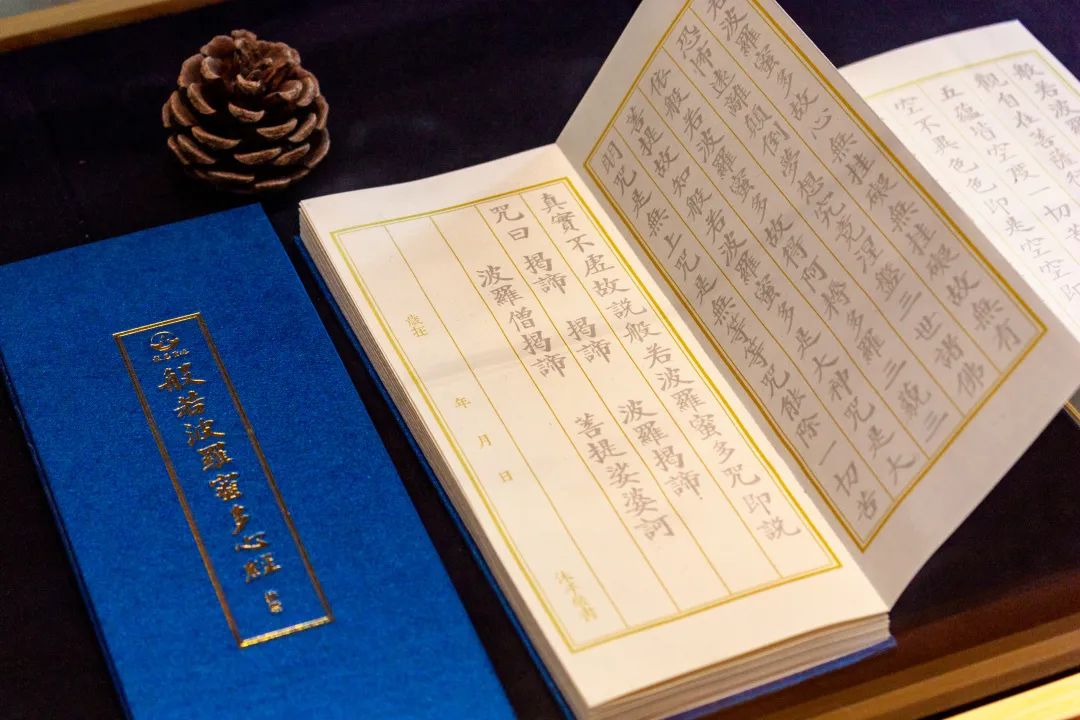 般若波羅蜜多心經
般若波羅
觀自在菩薩
五蘊皆空度一切苦
空不異色色即是空空即
若波羅蜜多故心無挂礙無挂礙故無有
恐怖遠離顛倒夢想究竟涅槃三世諸佛
依般若波羅蜜多故得阿耨多羅三藐三
菩提故知般若波羅蜜多是大神咒是大
明咒是無上咒是無等等咒能除一切苦
真實不虛故說般若波羅蜜多咒即說
咒曰 揭諦 揭諦 波羅揭諦
波羅僧揭諦 菩提娑婆訶
歲在 年 月 日
沐手敬書